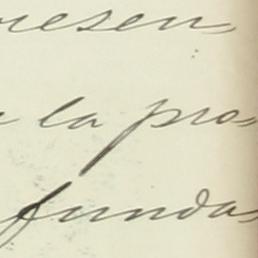 resen
a la pro
funda